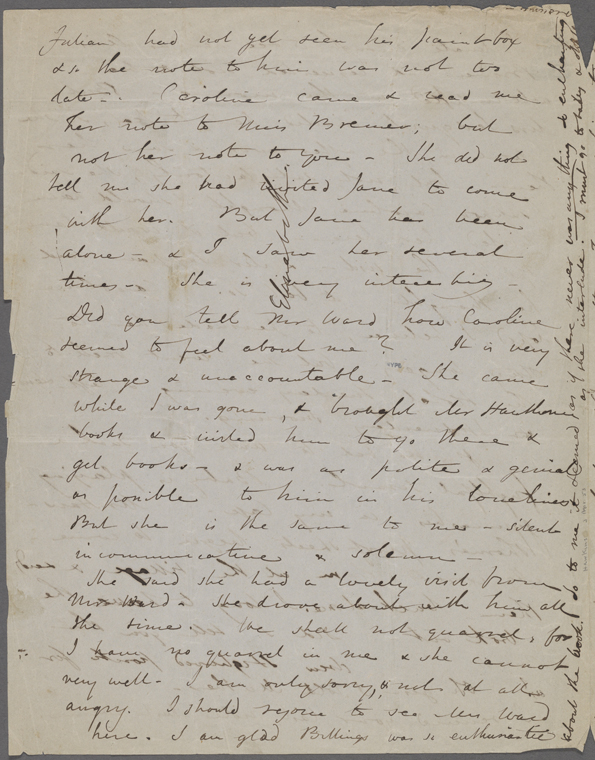 Julian had not yet seen his paintbox
& so the note to him was not too
late. Caroline came & read me
her note to Miss Bremer; but
not her note to you - She did not
tell me she had invited Jane to come
with her. But Jane has been
alone - & I saw her several
times - She is very interesting -
Did you tell Mr Ward how Caroline
seemed to feel about me? It is very
strange & unaccountable - She came
while I was gone, & brought Mr Hawthorne
books & invited him to go there &
get books - & was as polite & genial
as possible to him in his loneliness
But she is the same to me - silent
incommunicative & solemn -
She said she had a lovely visit from
Mr Ward - She drove about with him all
the time. We shall not quarrel, for
I have no quarrel in me & she cannot
very well - I am only sorry, & not at all
angry. I should rejoice to see Mr Ward
here. I am glad Billings was so enthusiastic
about the book. So to me it seemed as if there never was any thing so enchanting
as the interlude. I must go to baby &
Elizabeth